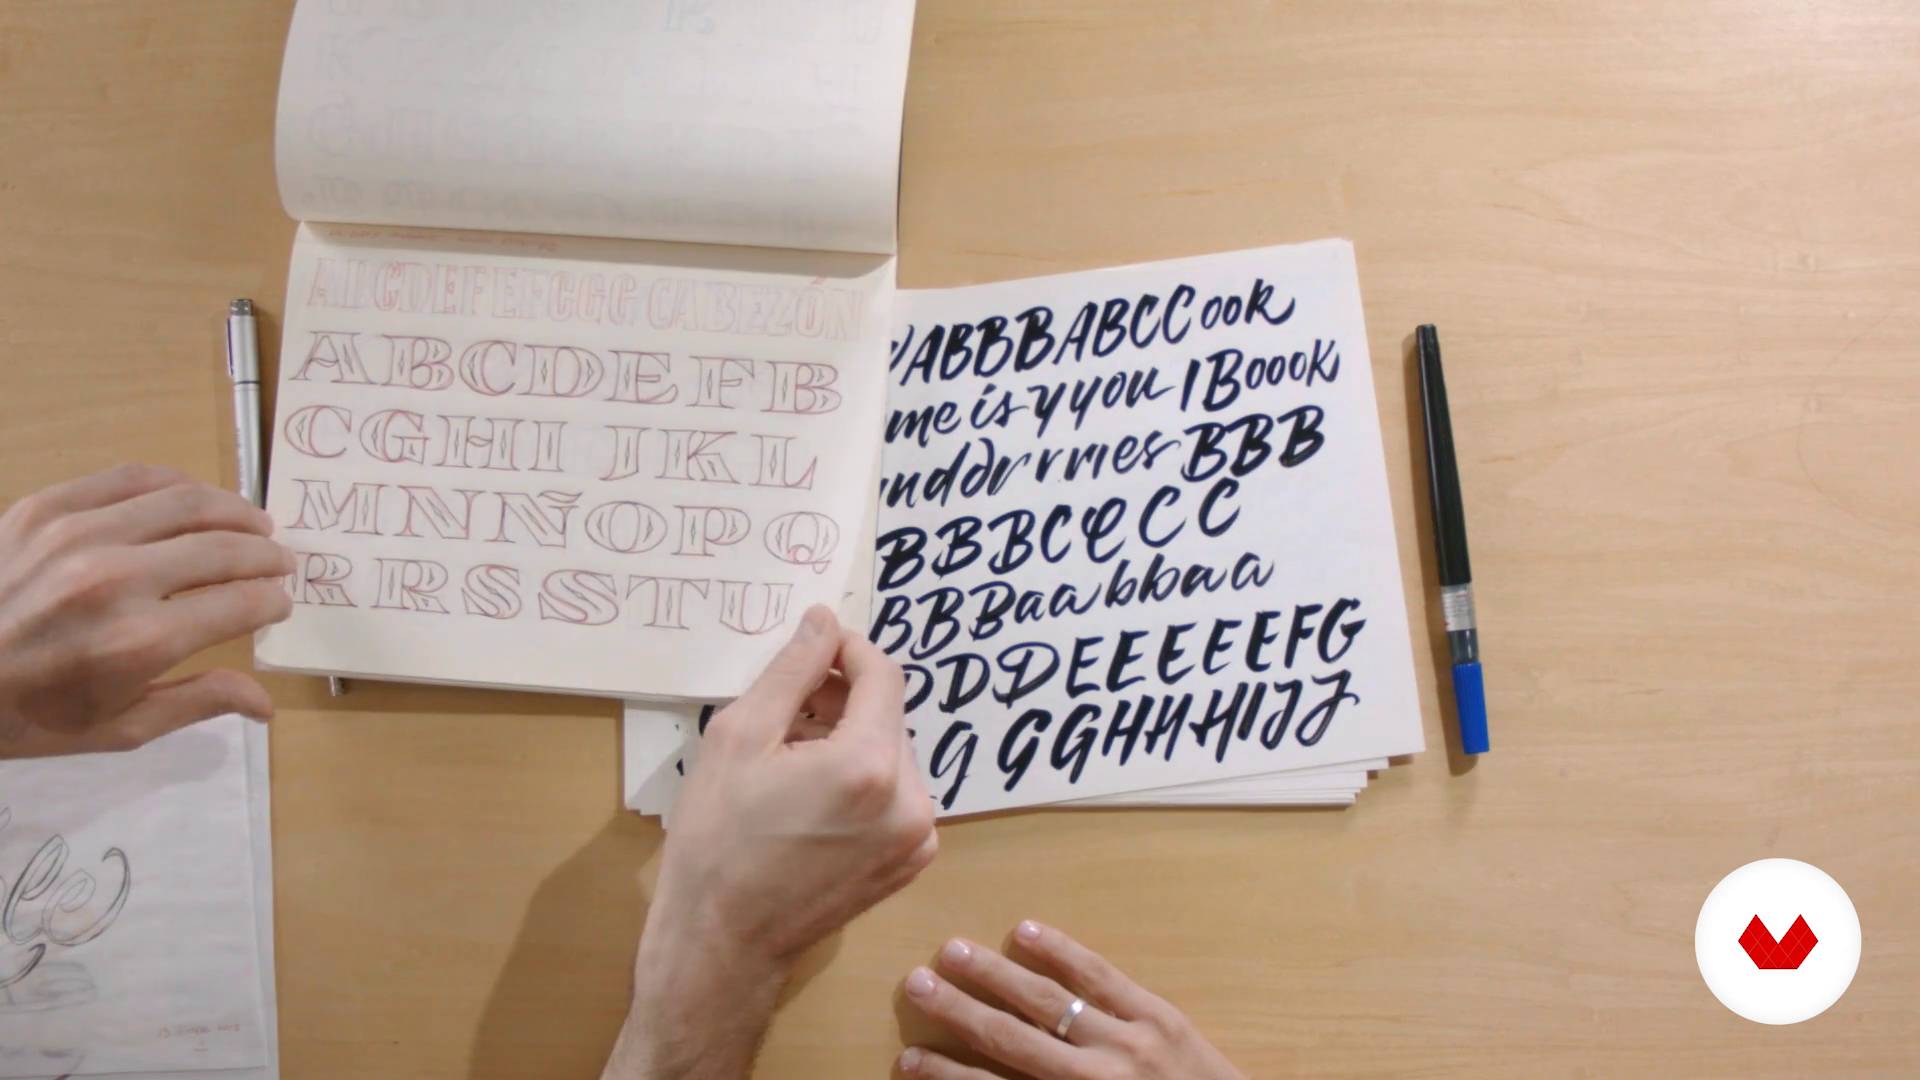 ABCDEFEFGGG CABEZÓN
ABCDEFB
CGHI JKL
MNÑOPQ
RRSSTU
ABBBABCCook
me is yyou I Boook
BBB
BBBCCCC
BBBaabbaa
DDDEEEEEFG
g GGHHHIJJ